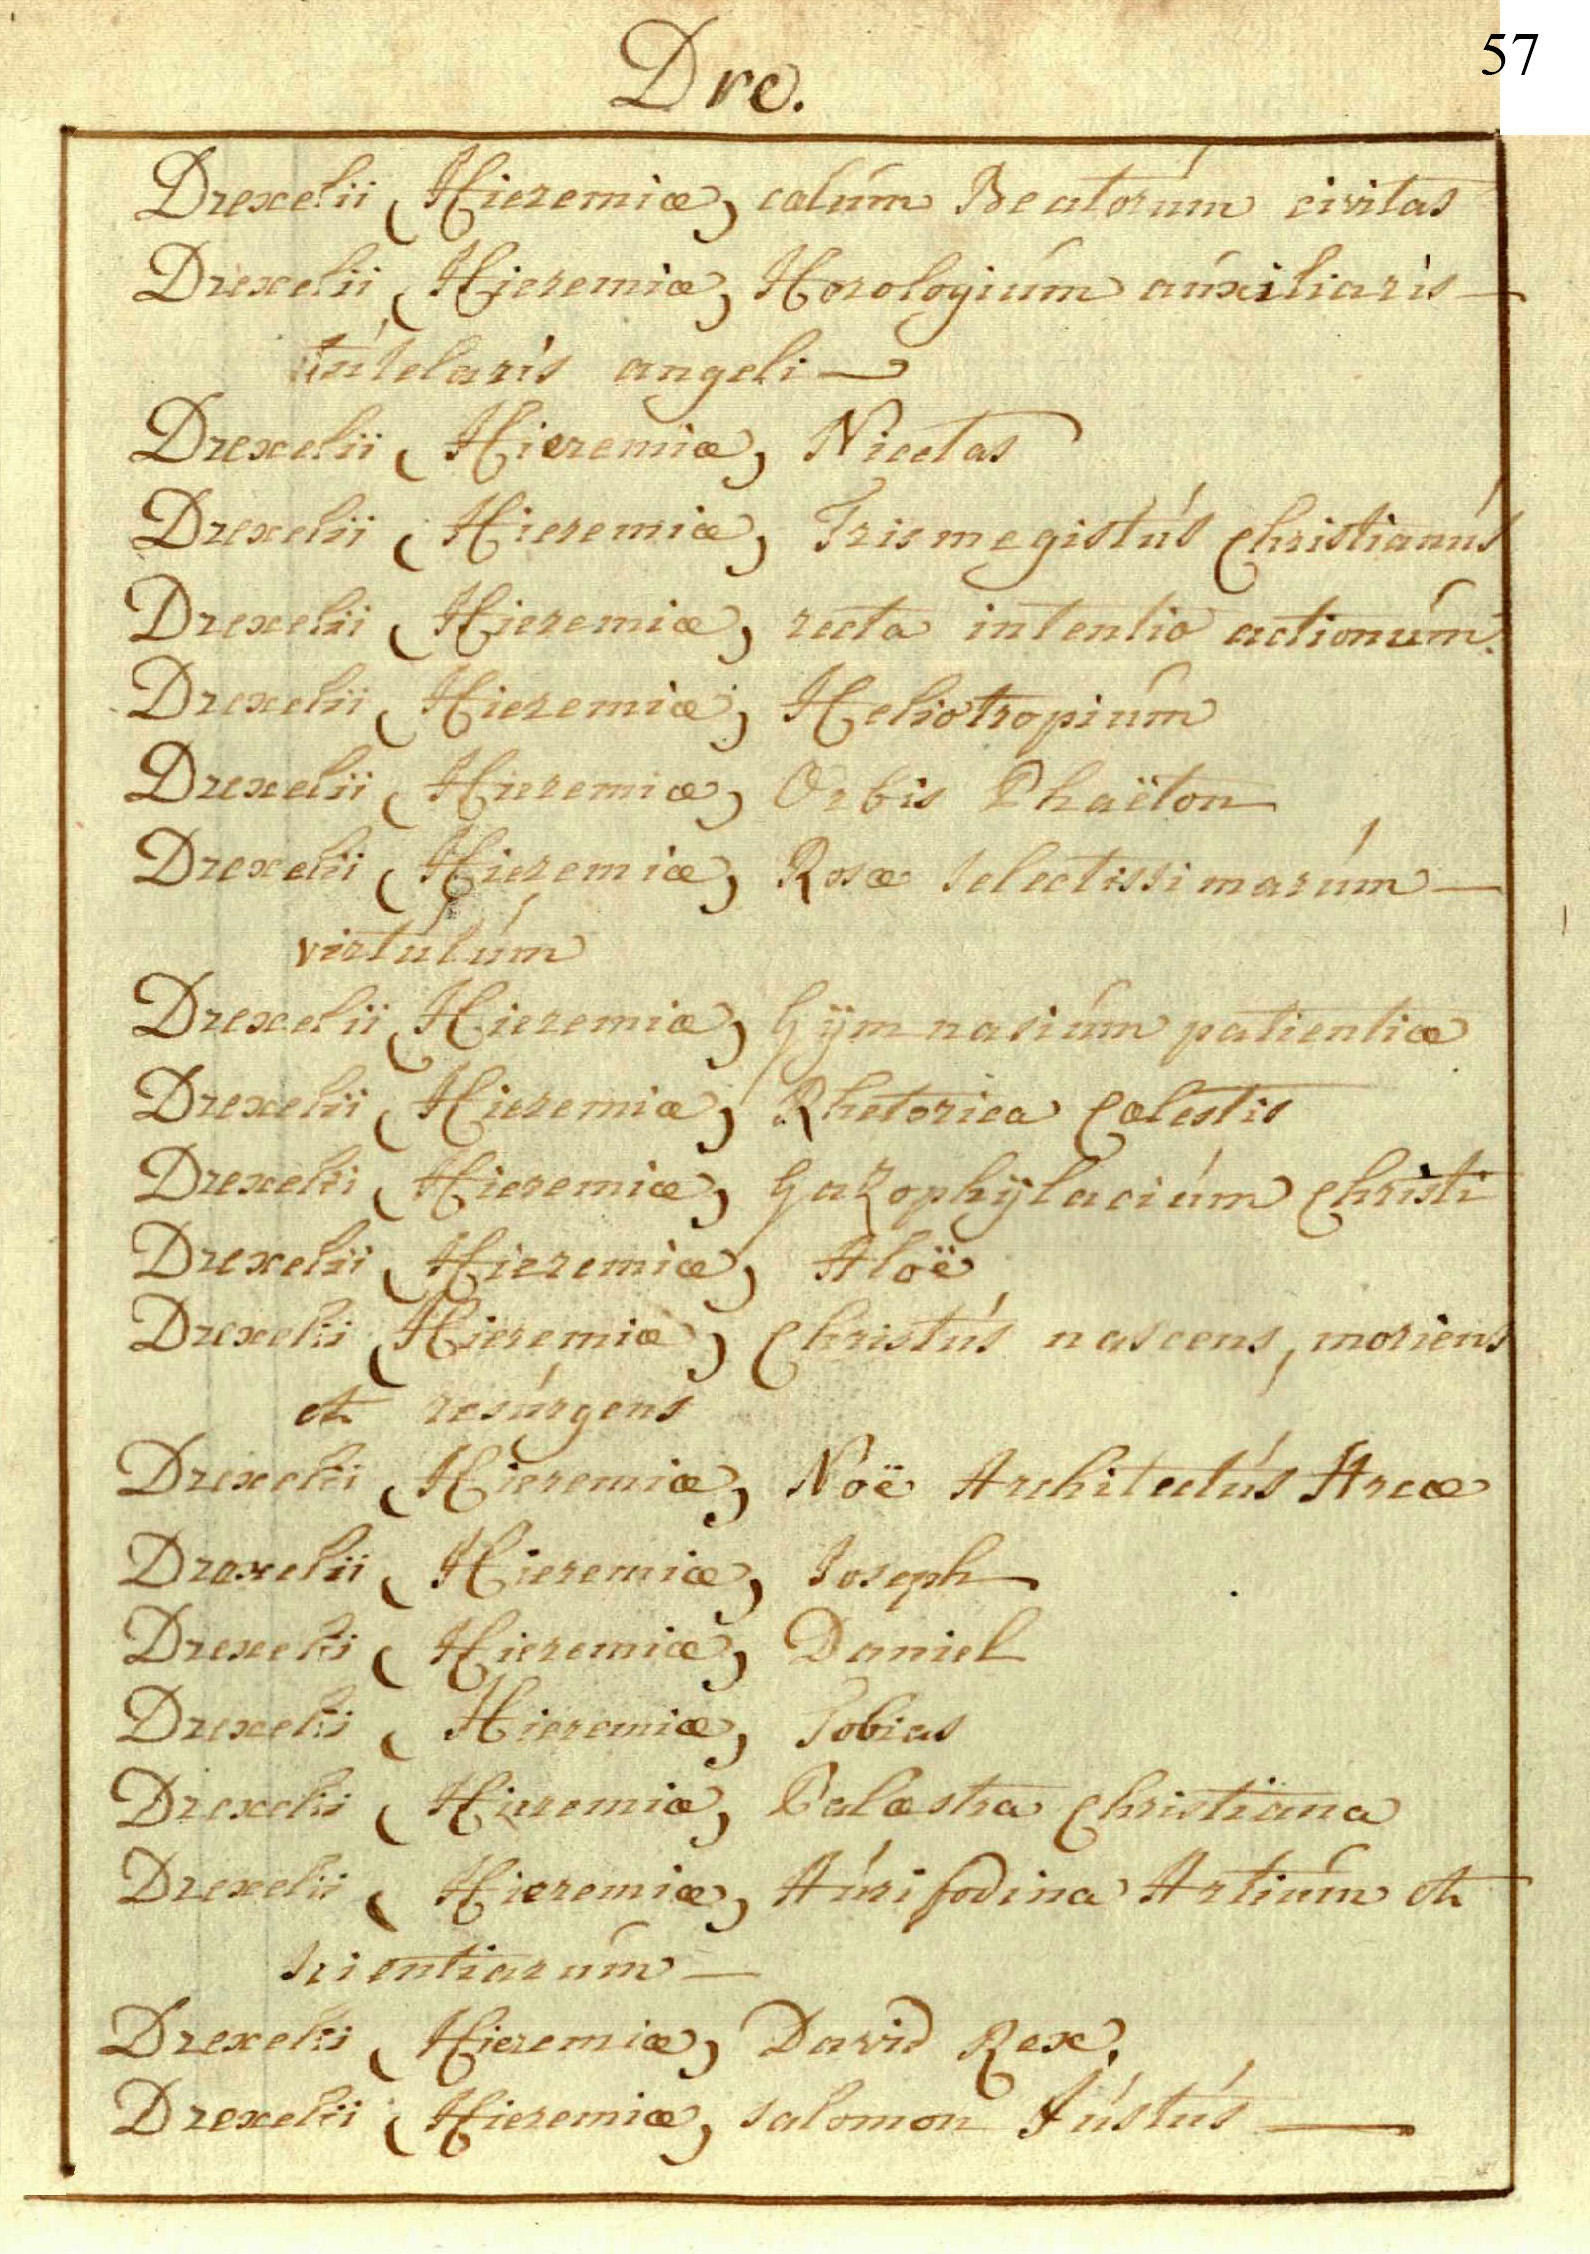 57
Dre.
Drexelii (Hieremiæ) cælúm Beatorúm civitas
Drexelii (Hieremiæ) Horologiúm aúxiliaris —
tútelaris angeli —
Drexelii (Hieremiæ) Nicetas
Drexelii (Hieremiæ) Trismegistús Christianús
Drexelii (Hieremiæ) recta intentio actionúm.
Drexelii (Hieremiæ) Heliotropiúm
Drexelii (Hieremiæ) Orbis Phaëton
Drexelii (Hieremiæ) Rosæ selectissimarúm —
virtútúm
Drexelii (Hieremiæ) Gÿmnasiúm patientiæ
Drexelii (Hieremiæ) Rhetorica Cælestis
Drexelii (Hieremiæ) Gazophÿlaciúm Christi
Drexelii (Hieremiæ) Aloë
Drexelii (Hieremiæ) Christús nascens, moriens
et resúrgens
Drexelii (Hieremiæ) Noë Architectús Arcæ
Drexelii (Hieremiæ) Joseph
Drexelii (Hieremiæ) Daniel
Drexelii (Hieremiæ) Tobias
Drexelii (Hieremiæ) Palæstra Christiana
Drexelii (Hieremiæ) Aúrifodina Artiúm et
scientiarúm —
Drexelii (Hieremiæ) David Rex.
Drexelii (Hieremiæ) salomon Jústús —